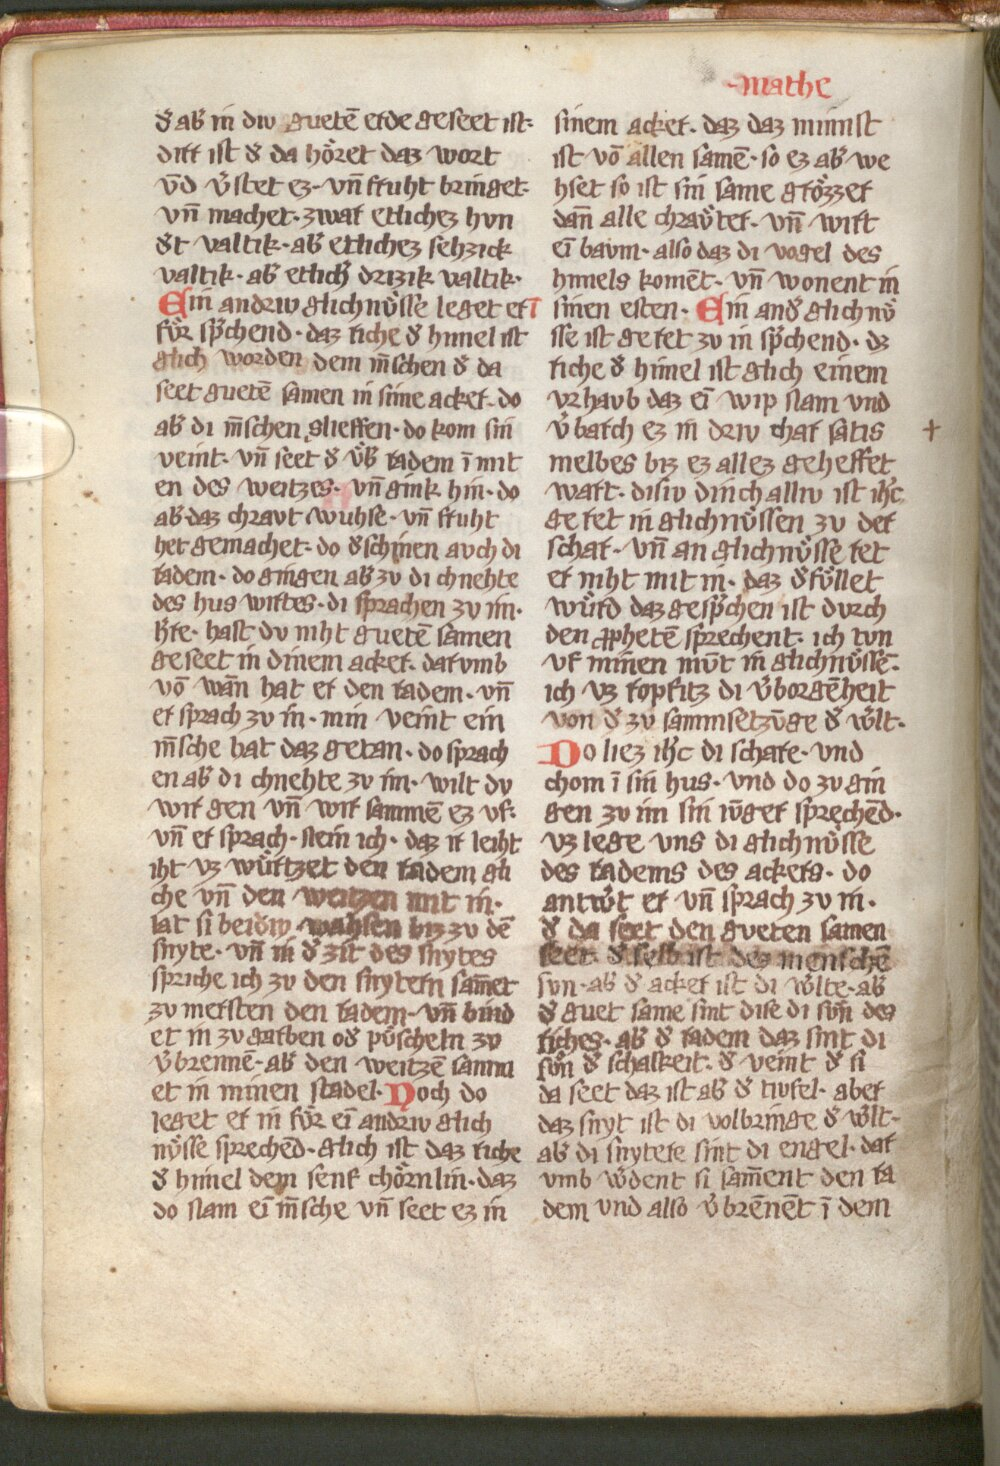 mathe
d̕ ab̕ in diu guetē erde geseet ist·
ditt ist d̕ da hȯret daz wort
vn̄d v̕stet ez· vn̄ fruht bringet·
vn̄ machet· zwar etlichez hvn
d̕t valtik· ab̕ etlichez sehzick
valtik· ab̕ etlich̕ drizik valtik·
Ein andriv glichnv̊sse leget er
fu̇r sp̕chend· daz riche d̕ himel ist
glich worden dem m̄schen d̕ da
seet guetē samen in sime acker· do
ab̕ di m̄schen slieffen· do kom sin
veint· vn̄ seet d̕ v̕b̕ radem ī mit
en des weitzes· vn̄ gink hin· do
ab̕ daz chravt wuhse· vn̄ fruht
het gemachet· do d̕schinen avch di
radem· do gingen ab̕ zv di chnehte
des hus wirtes· di sprachen zv im·
h̕re· hast dv niht guetē samen
geseet in dinem acker· darvmb
vō wān hat er den radem· vn̄
er sprach zv in· min veint ein
m̄sche hat daz getan· do sprach
en ab̕ di chnehte zv im· wilt dv
wir gen vn̄ wir sammē ez vf·
vn̄ er sprach· Nein ich· daz ir leiht
iht vz wu̇rtzet den radem gli
che vn̄ den weitzen mit in·
lat si beidiv wahsen biz zv dē
snyte· vn̄ in d̕ zit des snytes
spriche ich zv den snytern sam̄et
zv mersten den radem· vn̄ bind
et in zv garben od̕ pv̊scheln zv
v̕brennē· ab̕ den weitzē samn
et in minen stadel· Noch do
leget er in fu̇r eī andriv glich
nv̊sse sprechēd· glich ist daz riche
d̕ himel dem senf chȯrnlin· daz
do nam eī m̄sche vn̄ seet ez in
sinem acker· daz daz minnst
ist vō allen samē· so ez ab̕ we
hset so ist sin same grȯzzer
dan̄ alle chrav̊ter· vn̄ wirt
eī bavm· also daz di vogel des
himels komēt· vn̄ wonent in
sinen esten· Ein and̕ glichnv̊
sse ist geret zv in sp̕chend· dz
riche d̕ himel ist glich einem
vrhavb daz eī wip nam vnd
v̕barch ez in driv thar satis
melbes biz ez allez geheffet
wart· disiv dinch alliv ist ih̕c
geret in glichnv̊ssen zv der
schar· vn̄ an glichnv̊sse ret
er niht mit in· daz d̕fv̊llet
wu̇rd daz gesp̕chen ist durch
den p̱phetē sprechent· ich tvn
vf minen mv̄t in glichnv̊ssē·
ich vz ropfitz di v̕borgēheit
von d̕ zv sammsetzv̄ge d̕ w̕lt·
Do liez ih̕c di schare· vnd
chom ī sin hus· vnd do zv gin
gen zv im sin iv̄ger sprechēd·
vz lege vns di glichnv̊sse
des radems des ackers· do
antw̕t er vn̄ sprach zv in·
d̕ da seet den gueten samen
seet· d̕ selb ist dez menschē
svn· ab̕ d̕ acker ist di w̕lte· ab̕
d̕ guet same sint dise di sv̊n des
riches· ab̕ d̕ radem daz sint di
sv̊n d̕ schalkeit· d̕ veint d̕ si
da seet daz ist ab̕ d̕ tivfel· aber
daz snyt ist di volbringe d̕ w̕lt·
ab̕ di snytere sint di engel· dar
vmb w̕dent si sam̄ent den ra
dem vnd also v̕brēnēt ī dem